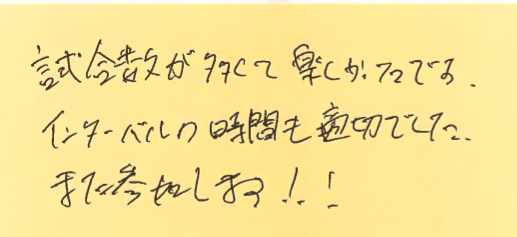 試合数が多くて楽しかったです.
インターバルの時間も適切でした.
また参加します!!